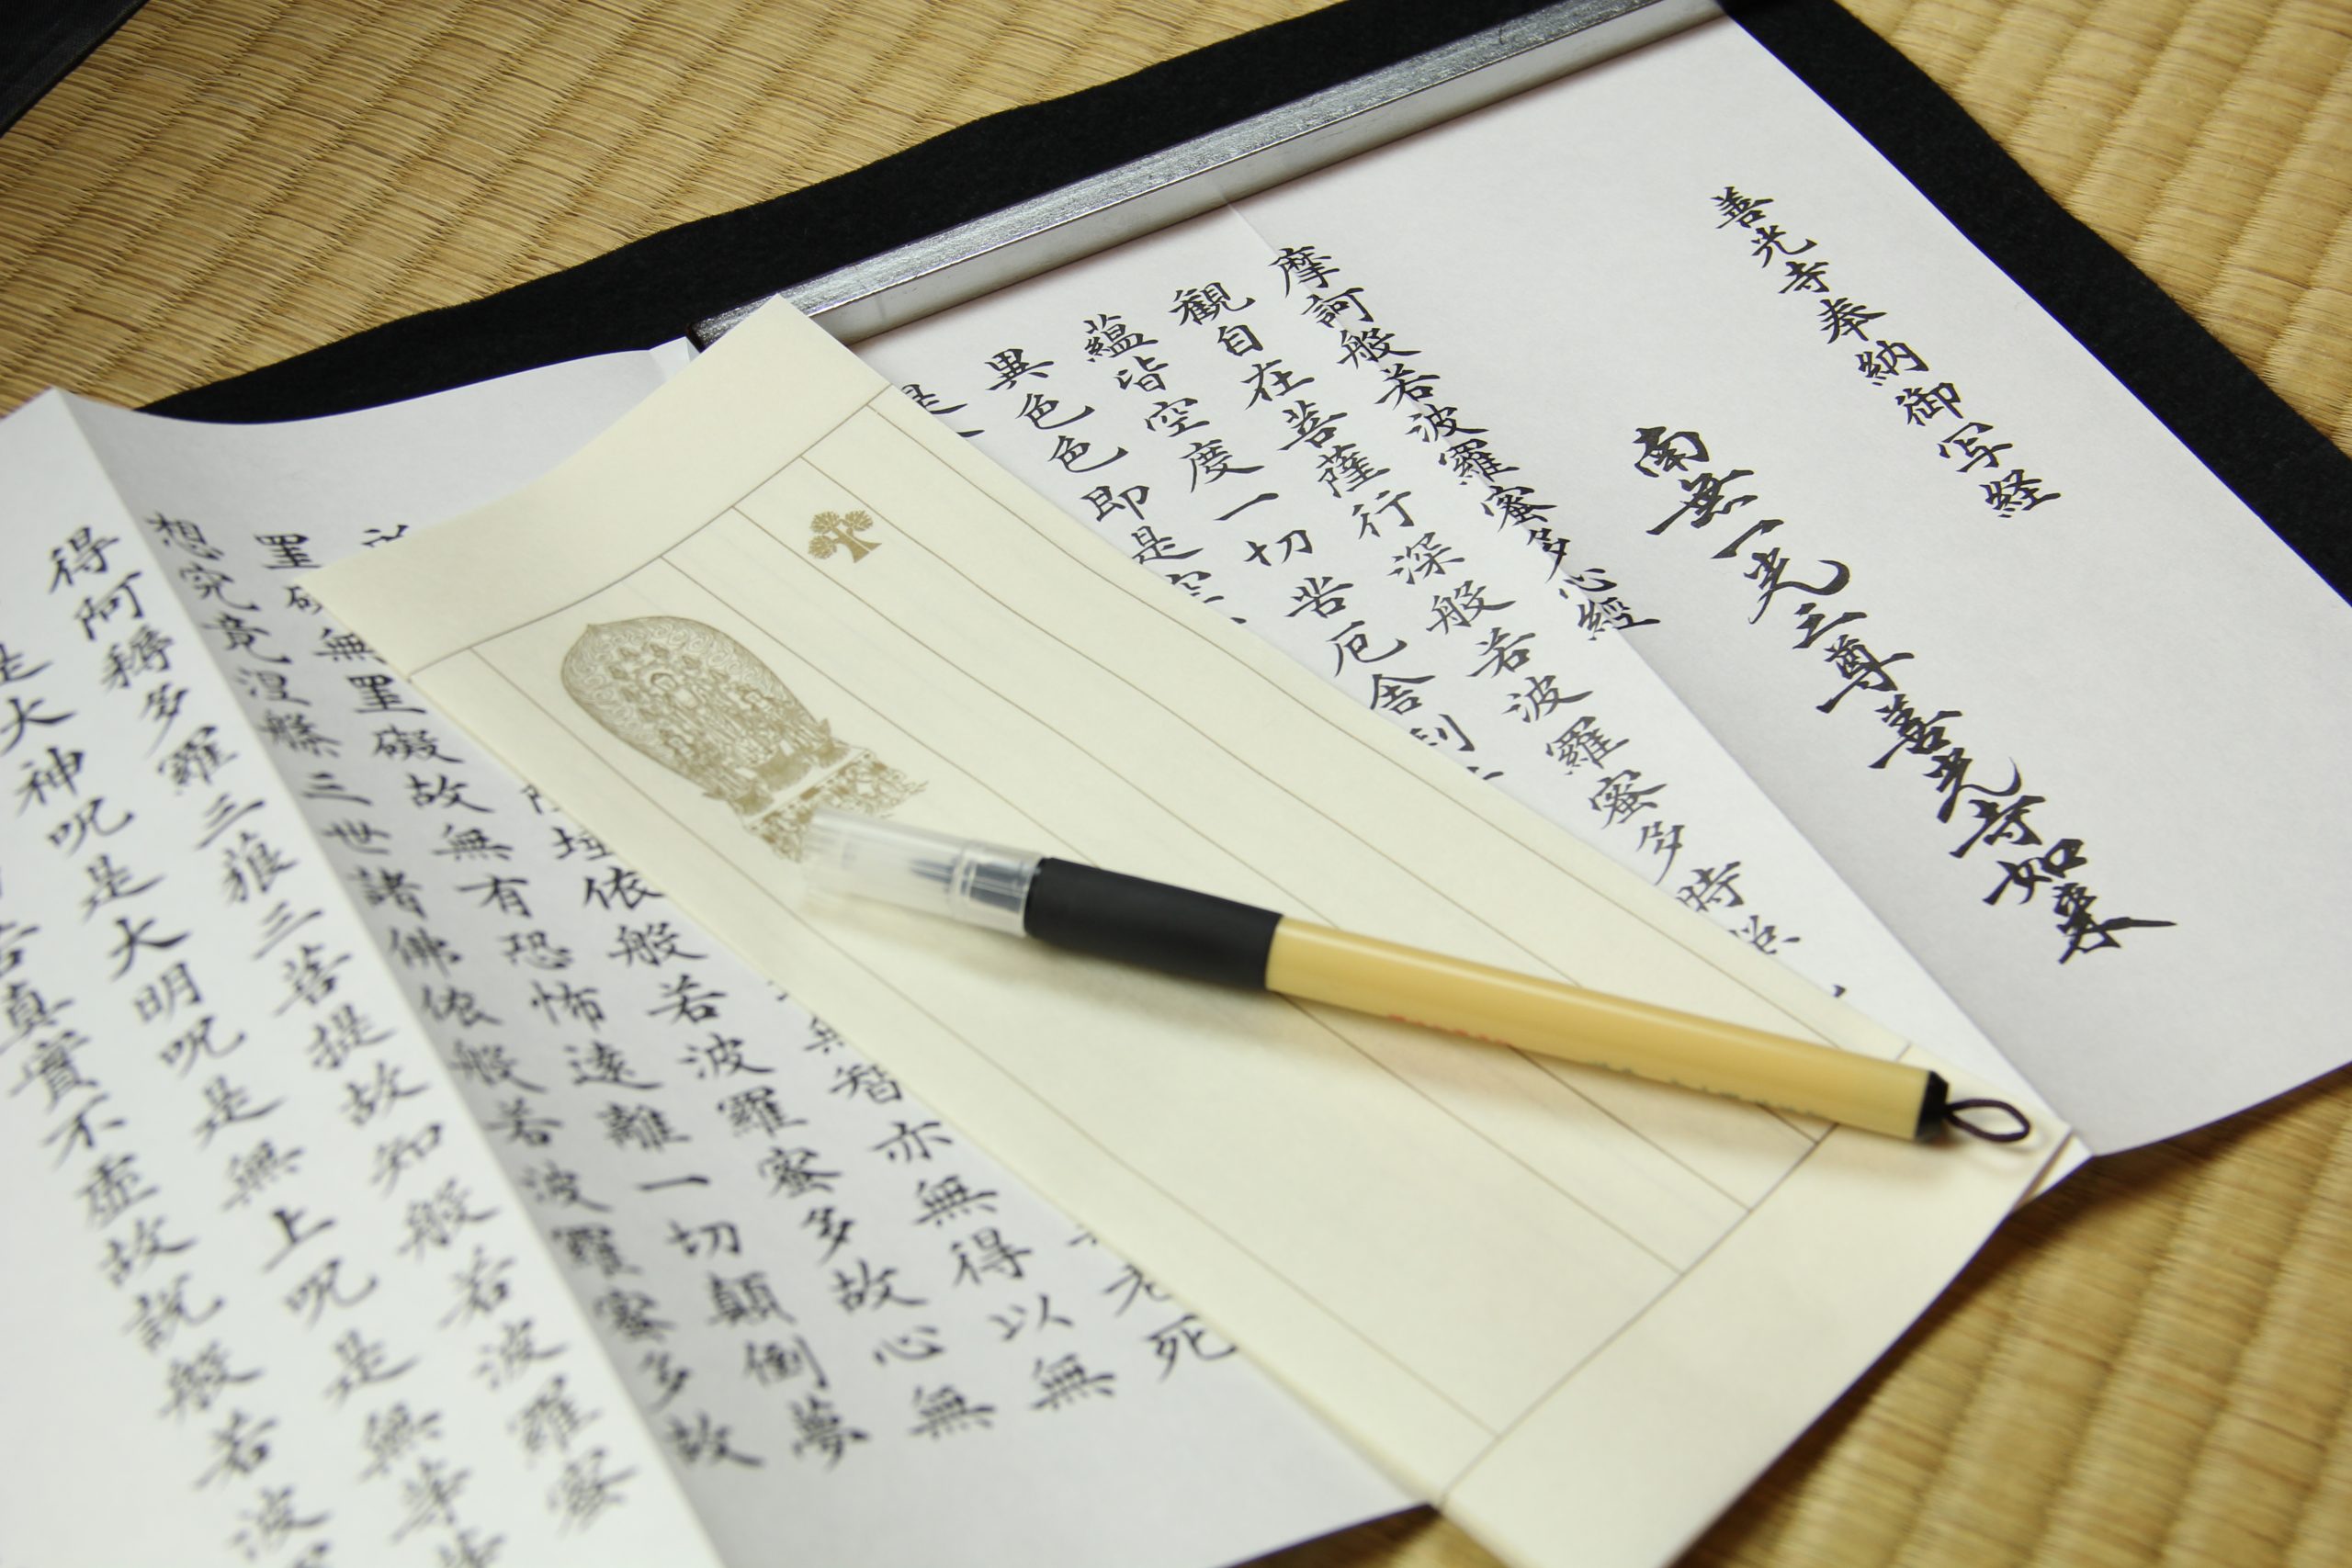 善光寺奉納御写経
南無一光三尊善光寺如来
摩訶般若波羅蜜多心経
観自在菩薩行深般若波羅蜜多時照
蘊皆空度一切苦厄舎利
異色色即是空
是
老死
無智亦無得以無
埵依般若波羅蜜多故心無
罣礙無罣礙故無有恐怖遠離一切顛倒夢
想究竟涅槃三世諸佛依般若波羅蜜多故
得阿耨多羅三藐三菩提故知般若波羅蜜
是大神呪是大明呪是無上呪是無等等
苦真實不虚故説般若波